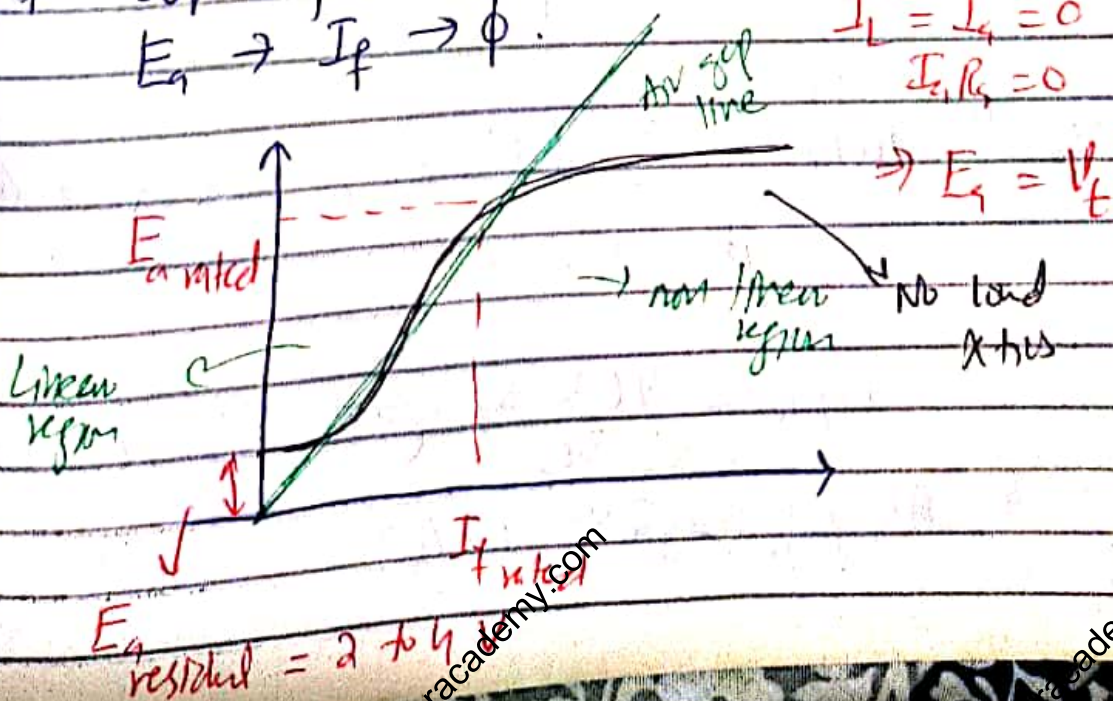 Ea → If → ϕ.
IL = Ia = 0
Ia Ra = 0
Air gap
line
⇒ Ea = Vt
Ea rated
→ non linear
region
No load
X tics
Linear
region
If rated
Ea residual = 2 to 4 V
racademy.com
racade